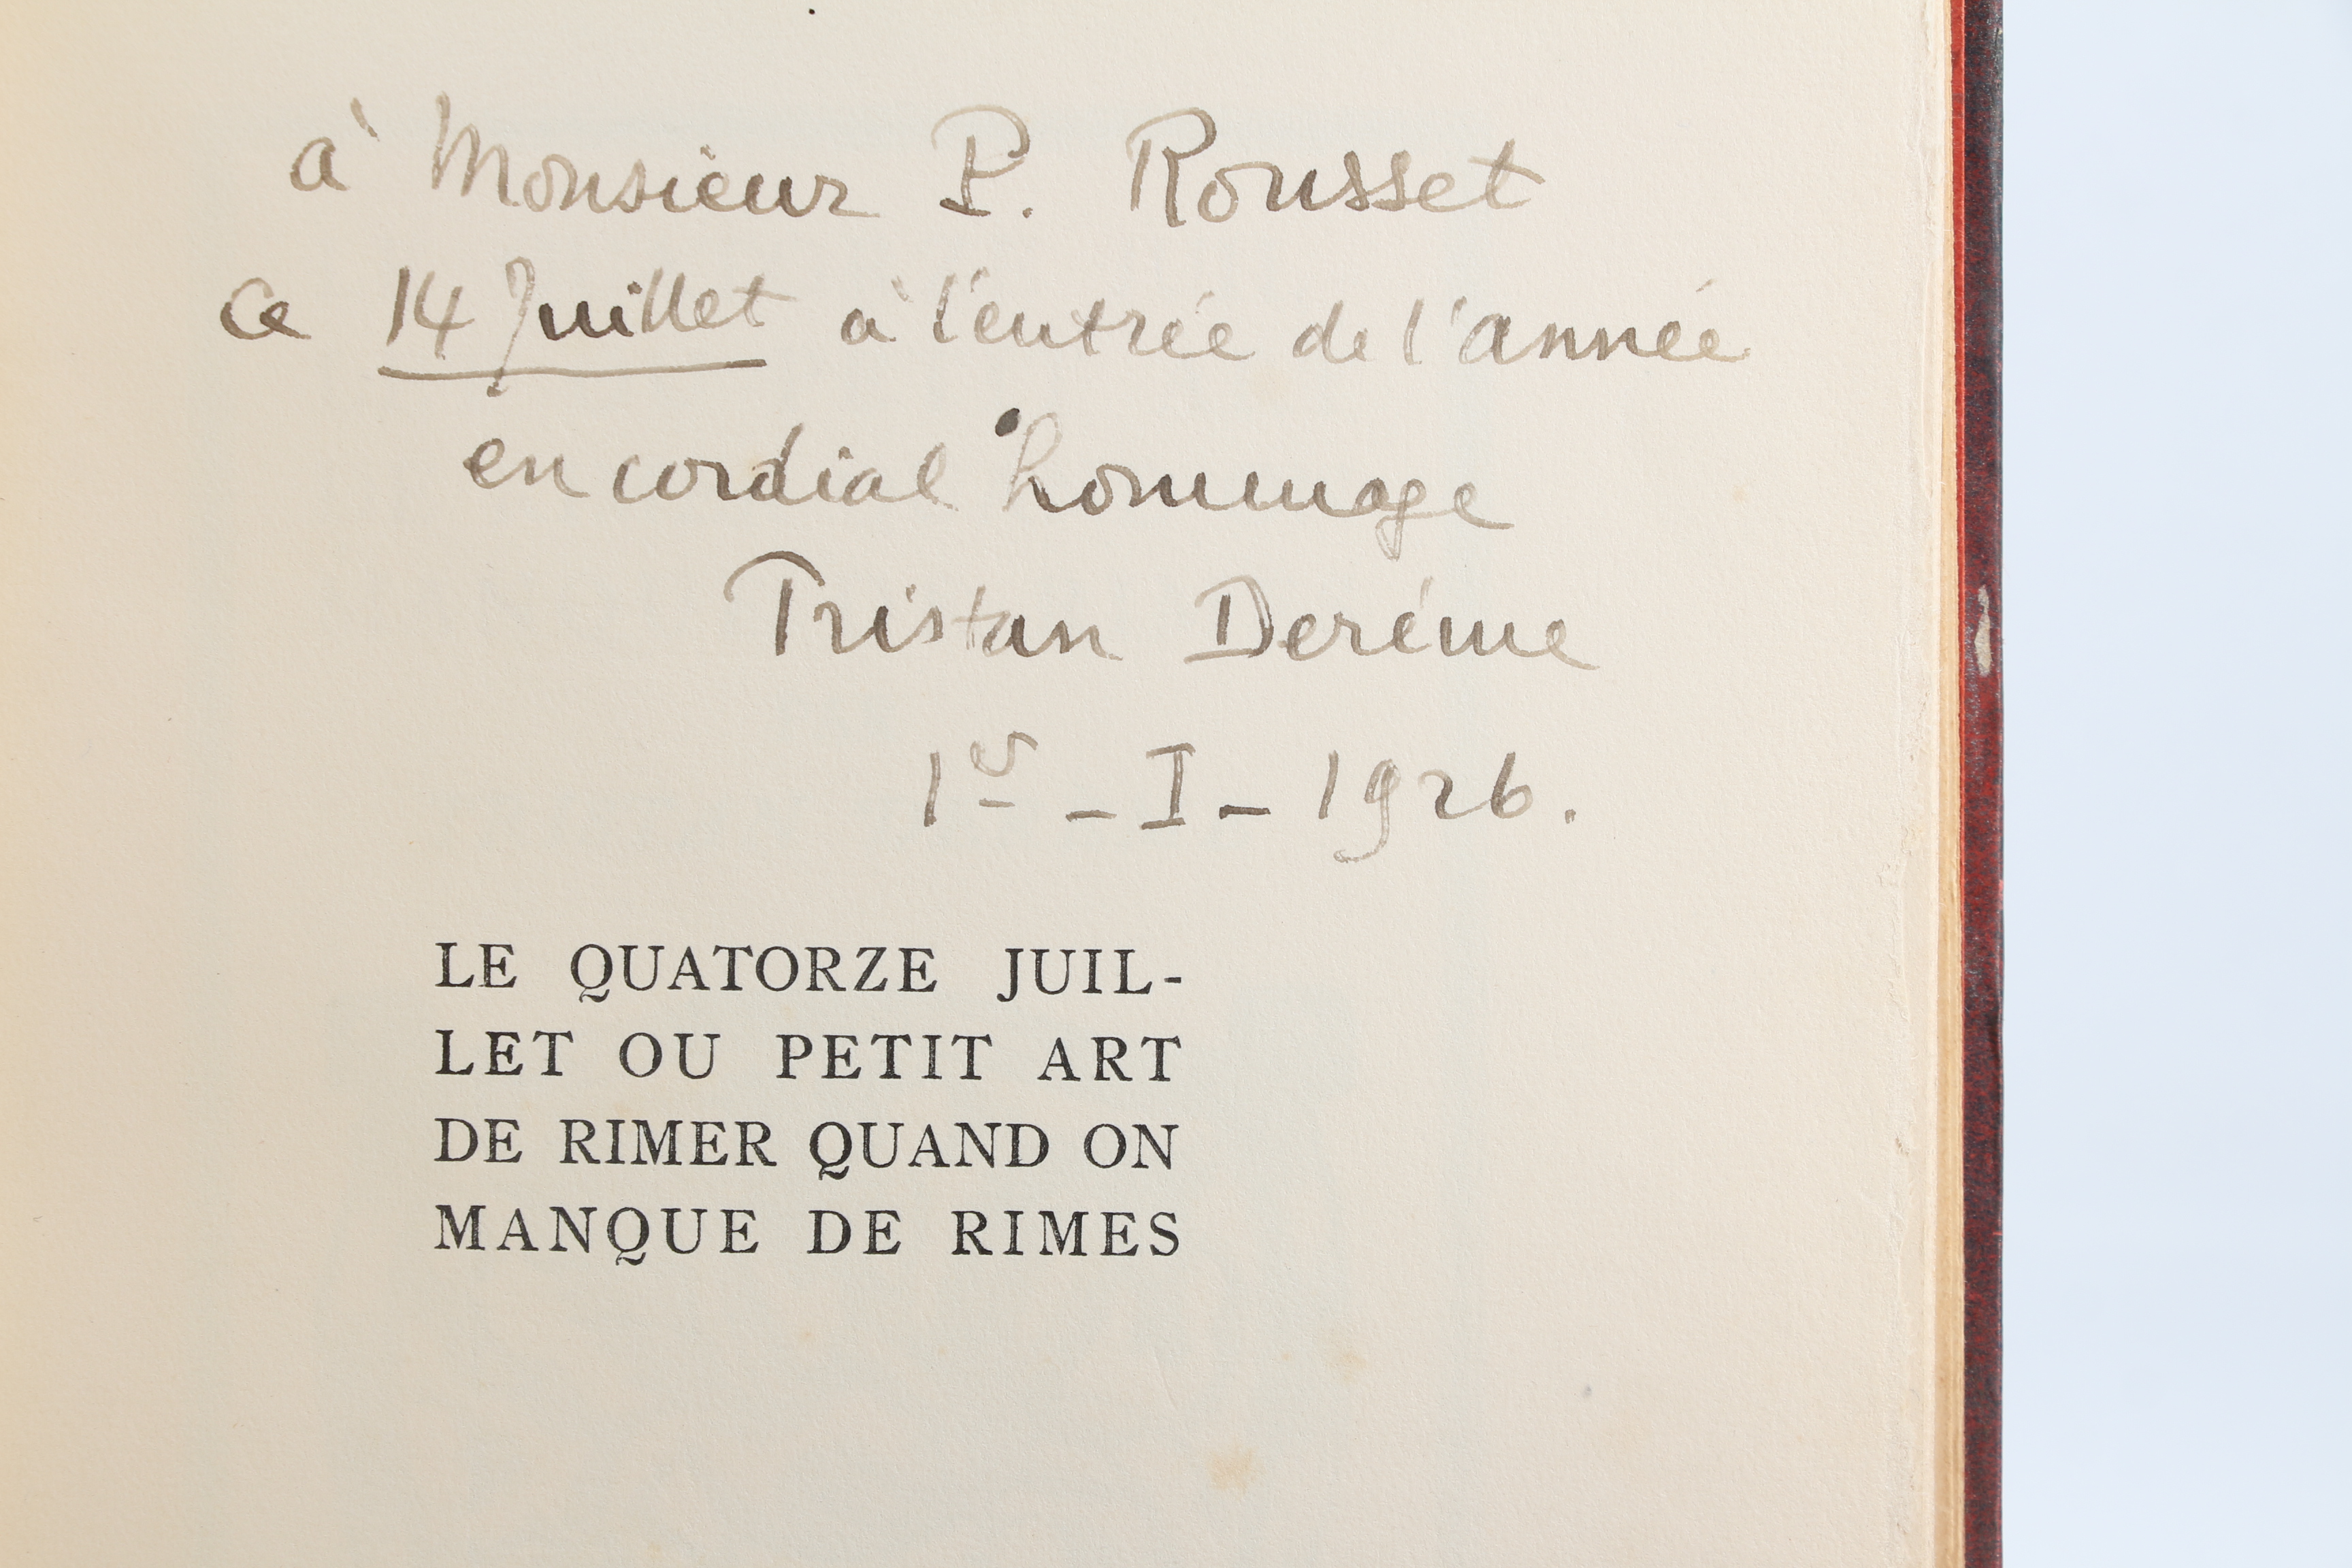 à Monsieur P. Rousset
ce 14 Juillet à l'entrée de l'année
en cordial hommage
Tristan Derème
1er - I - 1926.
LE QUATORZE JUIL-
LET OU PETIT ART
DE RIMER QUAND ON
MANQUE DE RIMES